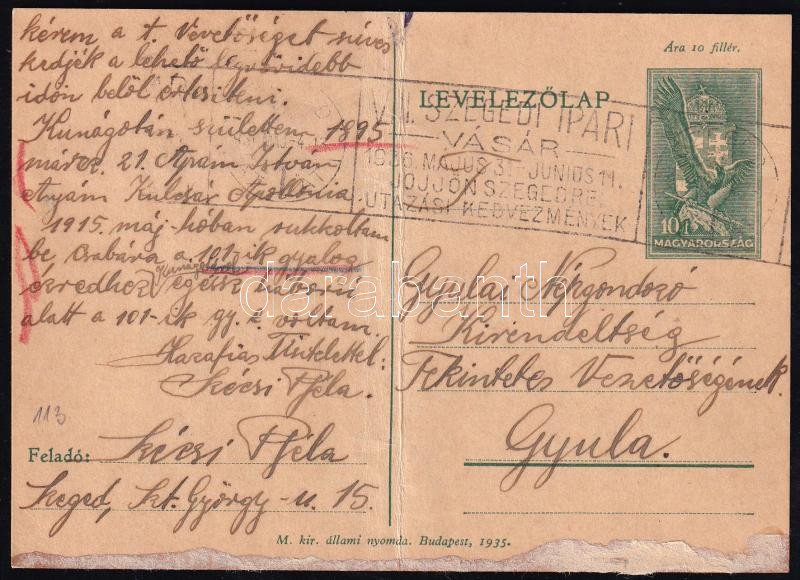 kérem a t. Vezetőséget szíves
kedjék a lehető legrövidebb
időn belől értesíteni.
Kunágotán születtem 1895
márcz. 21. Apám István
Anyám Kulcsár Apollonia
1915. máj-hóban rukkoltam
be Csabára a 101-ik gyalog
ezredhez egész háború
alatt a 101-ik gy. e. voltam.
Hazafias Tisztelettel:
Szécsi Béla.
113
Feladó: Szécsi Béla
Szeged, Szt. György-u. 15.
Ára 10 fillér.
LEVELEZŐLAP
10 f
MAGYARORSZÁG
VI. SZEGEDI IPARI
VÁSÁR
1936. MÁJUS 31-JUNIUS 11.
JÖJJÖN SZEGEDRE!
UTAZÁSI KEDVEZMÉNYEK
Gyulai Népgondozó
Kirendeltség
Tekintetes Vezetőségének.
Gyula.
M. kir. állami nyomda. Budapest, 1935.
darabanth